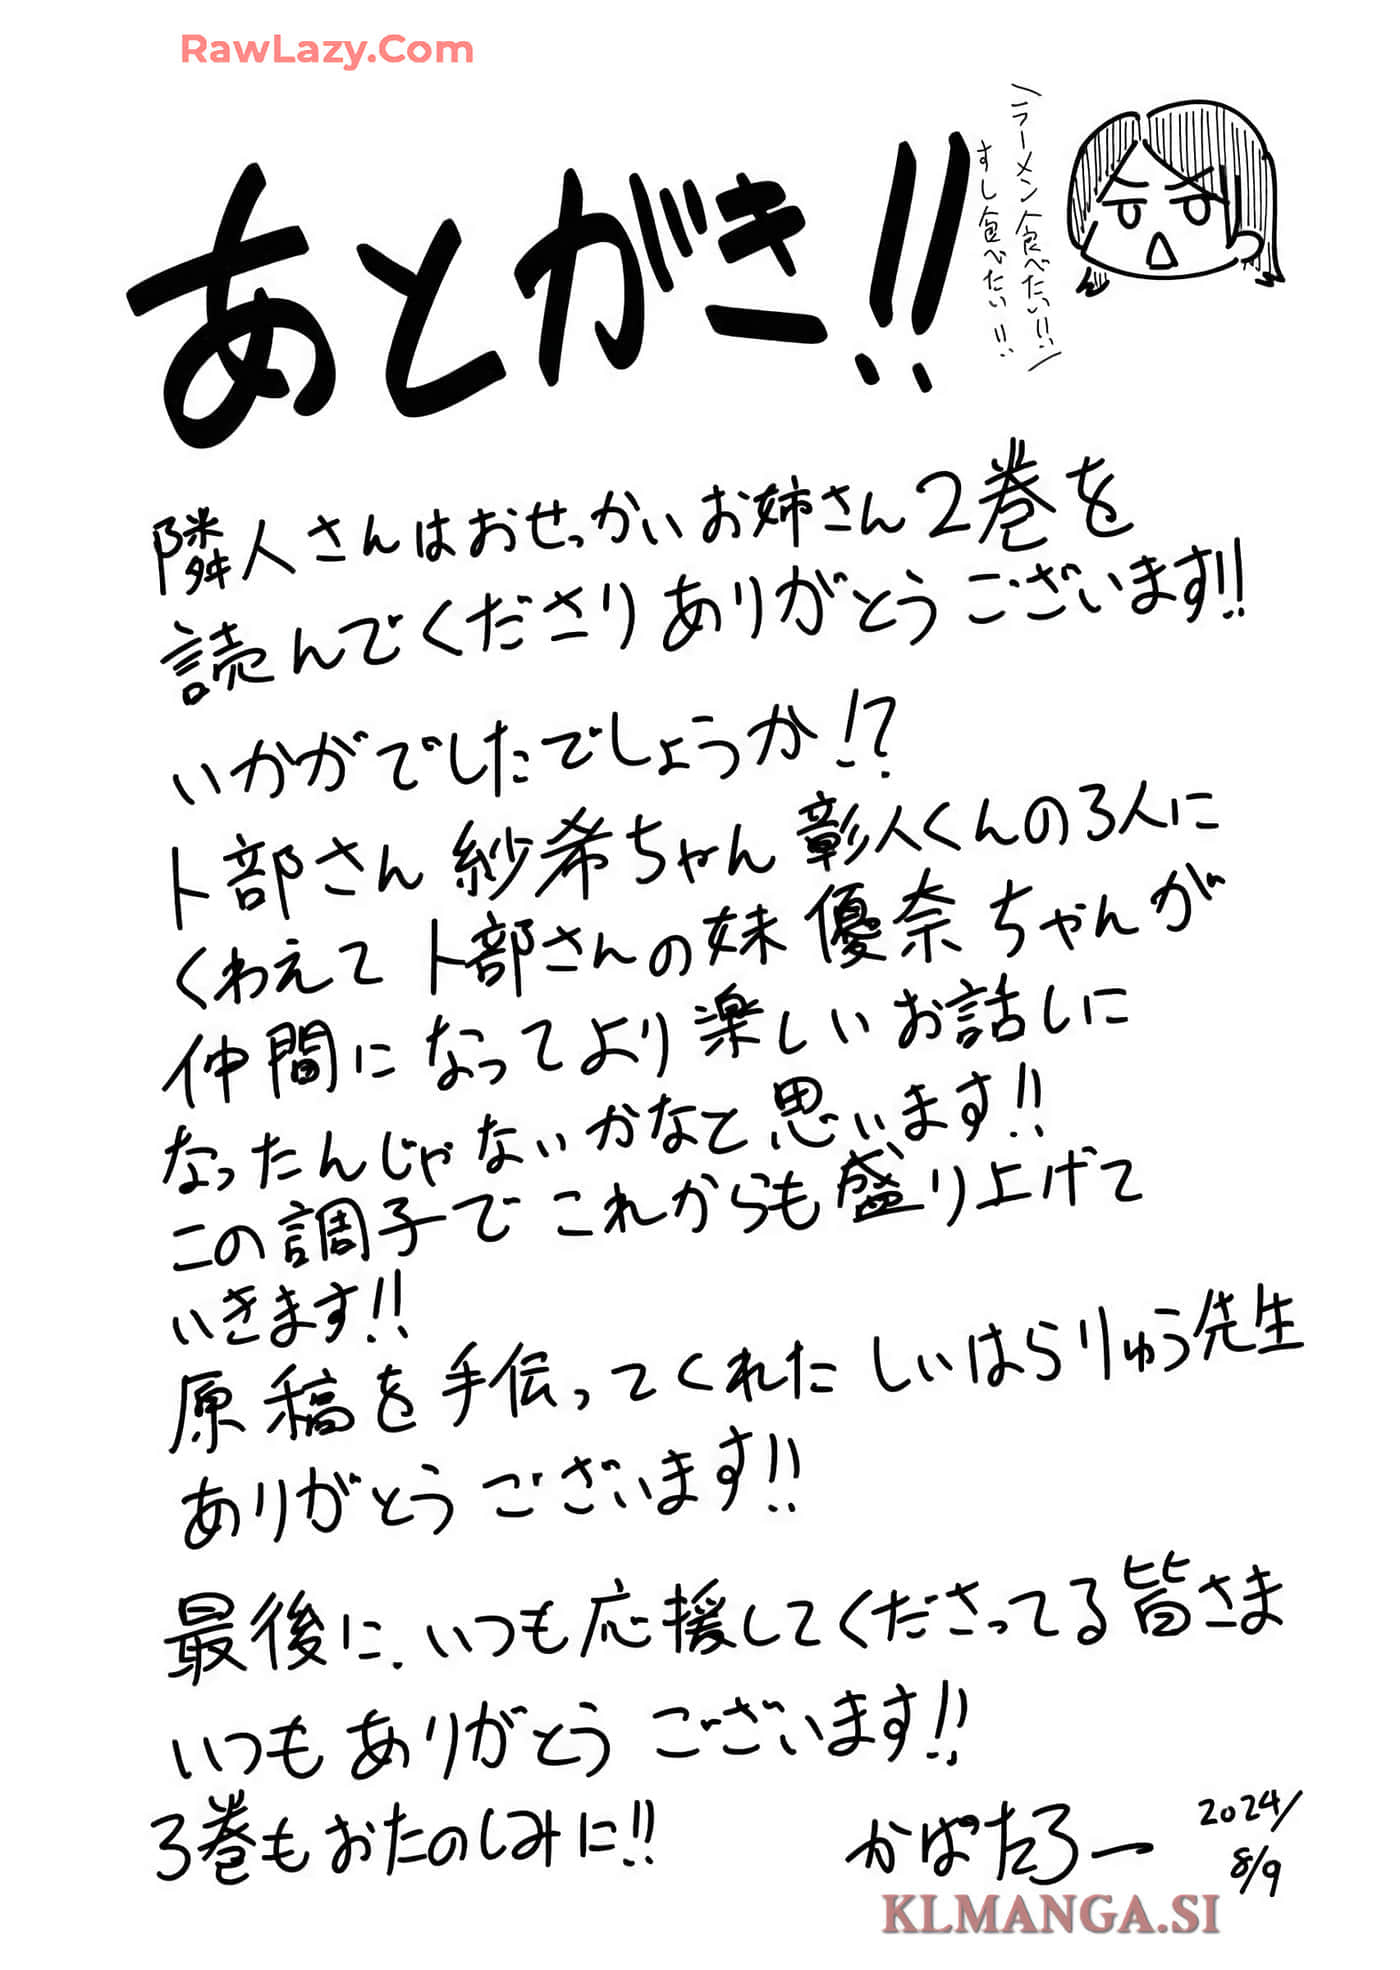 RawLazy.Com
あとがき!!
ラーメン食べたい!!
すし食べたい!!
隣人さんはおせっかいお姉さん2巻を
読んでくださりありがとうございます!!
いかがでしたでしょうか!?
卜部さん 紗希ちゃん 彰人くんの3人に
くわえて 卜部さんの妹 優奈ちゃんが
仲間になってより楽しいお話しに
なったんじゃないかなと思います!!
この調子でこれからも盛り上げて
いきます!!
原稿を手伝ってくれた しいはらりゅう先生
ありがとうございます!!
最後に、いつも応援してくださってる皆さま
いつもありがとうございます!!
3巻もおたのしみに!!
かぱたろー
2024/
8/9
KLMANGA.SI